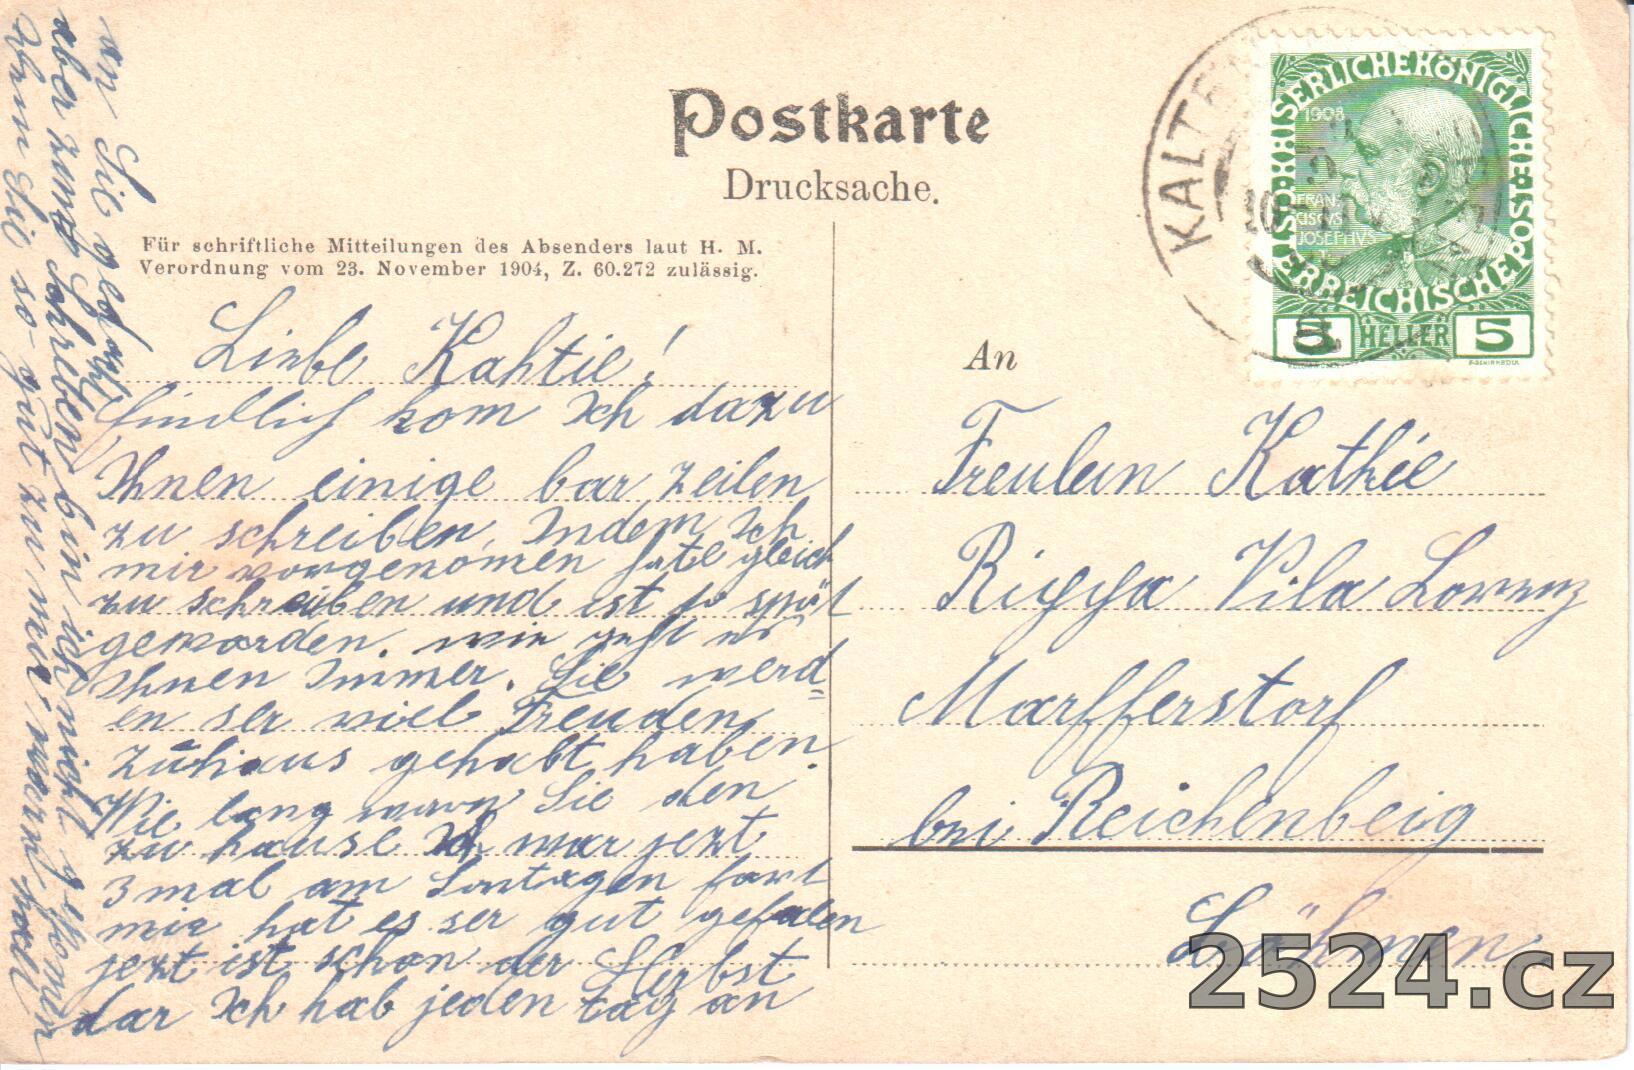 Postkarte
Drucksache.
Für schriftliche Mitteilungen des Absenders laut H. M.
Verordnung vom 23. November 1904, Z. 60.272 zulässig.
Liebe Kahtie!
Endlich kom Ich dazu
Ihnen einige bar zeilen
zu schreiben. Indem Ich
mir vorgenomen hate gleich
zu schreiben und ist so spät
geworden. wie geht es
Ihnen Immer. Sie werd=
en ser viel Freuden
zuhaus gehabt haben.
Wie lang waren Sie den
zu hause Ich war jezt
3 mal am Sontagen fort
mir hat es ser gut gefalen
jezt ist schon der Herbst
dar Ich hab jeden tag an
an Sie gedacht
aber zum schreiben bin ich nicht gekomen
Wenn Sie so gut zu mir
An
Freulein Kathie
Rigga Vila Lorenz
Marffersdorf
bei Reichenberg
Böhmen.
KALTEN
KAISERLICHEKÖNIGLICHE
ÖSTERREICHISCHE POST
1908
FRAN
CISCVS
JOSEPHVS
5 HELLER 5
2524.cz